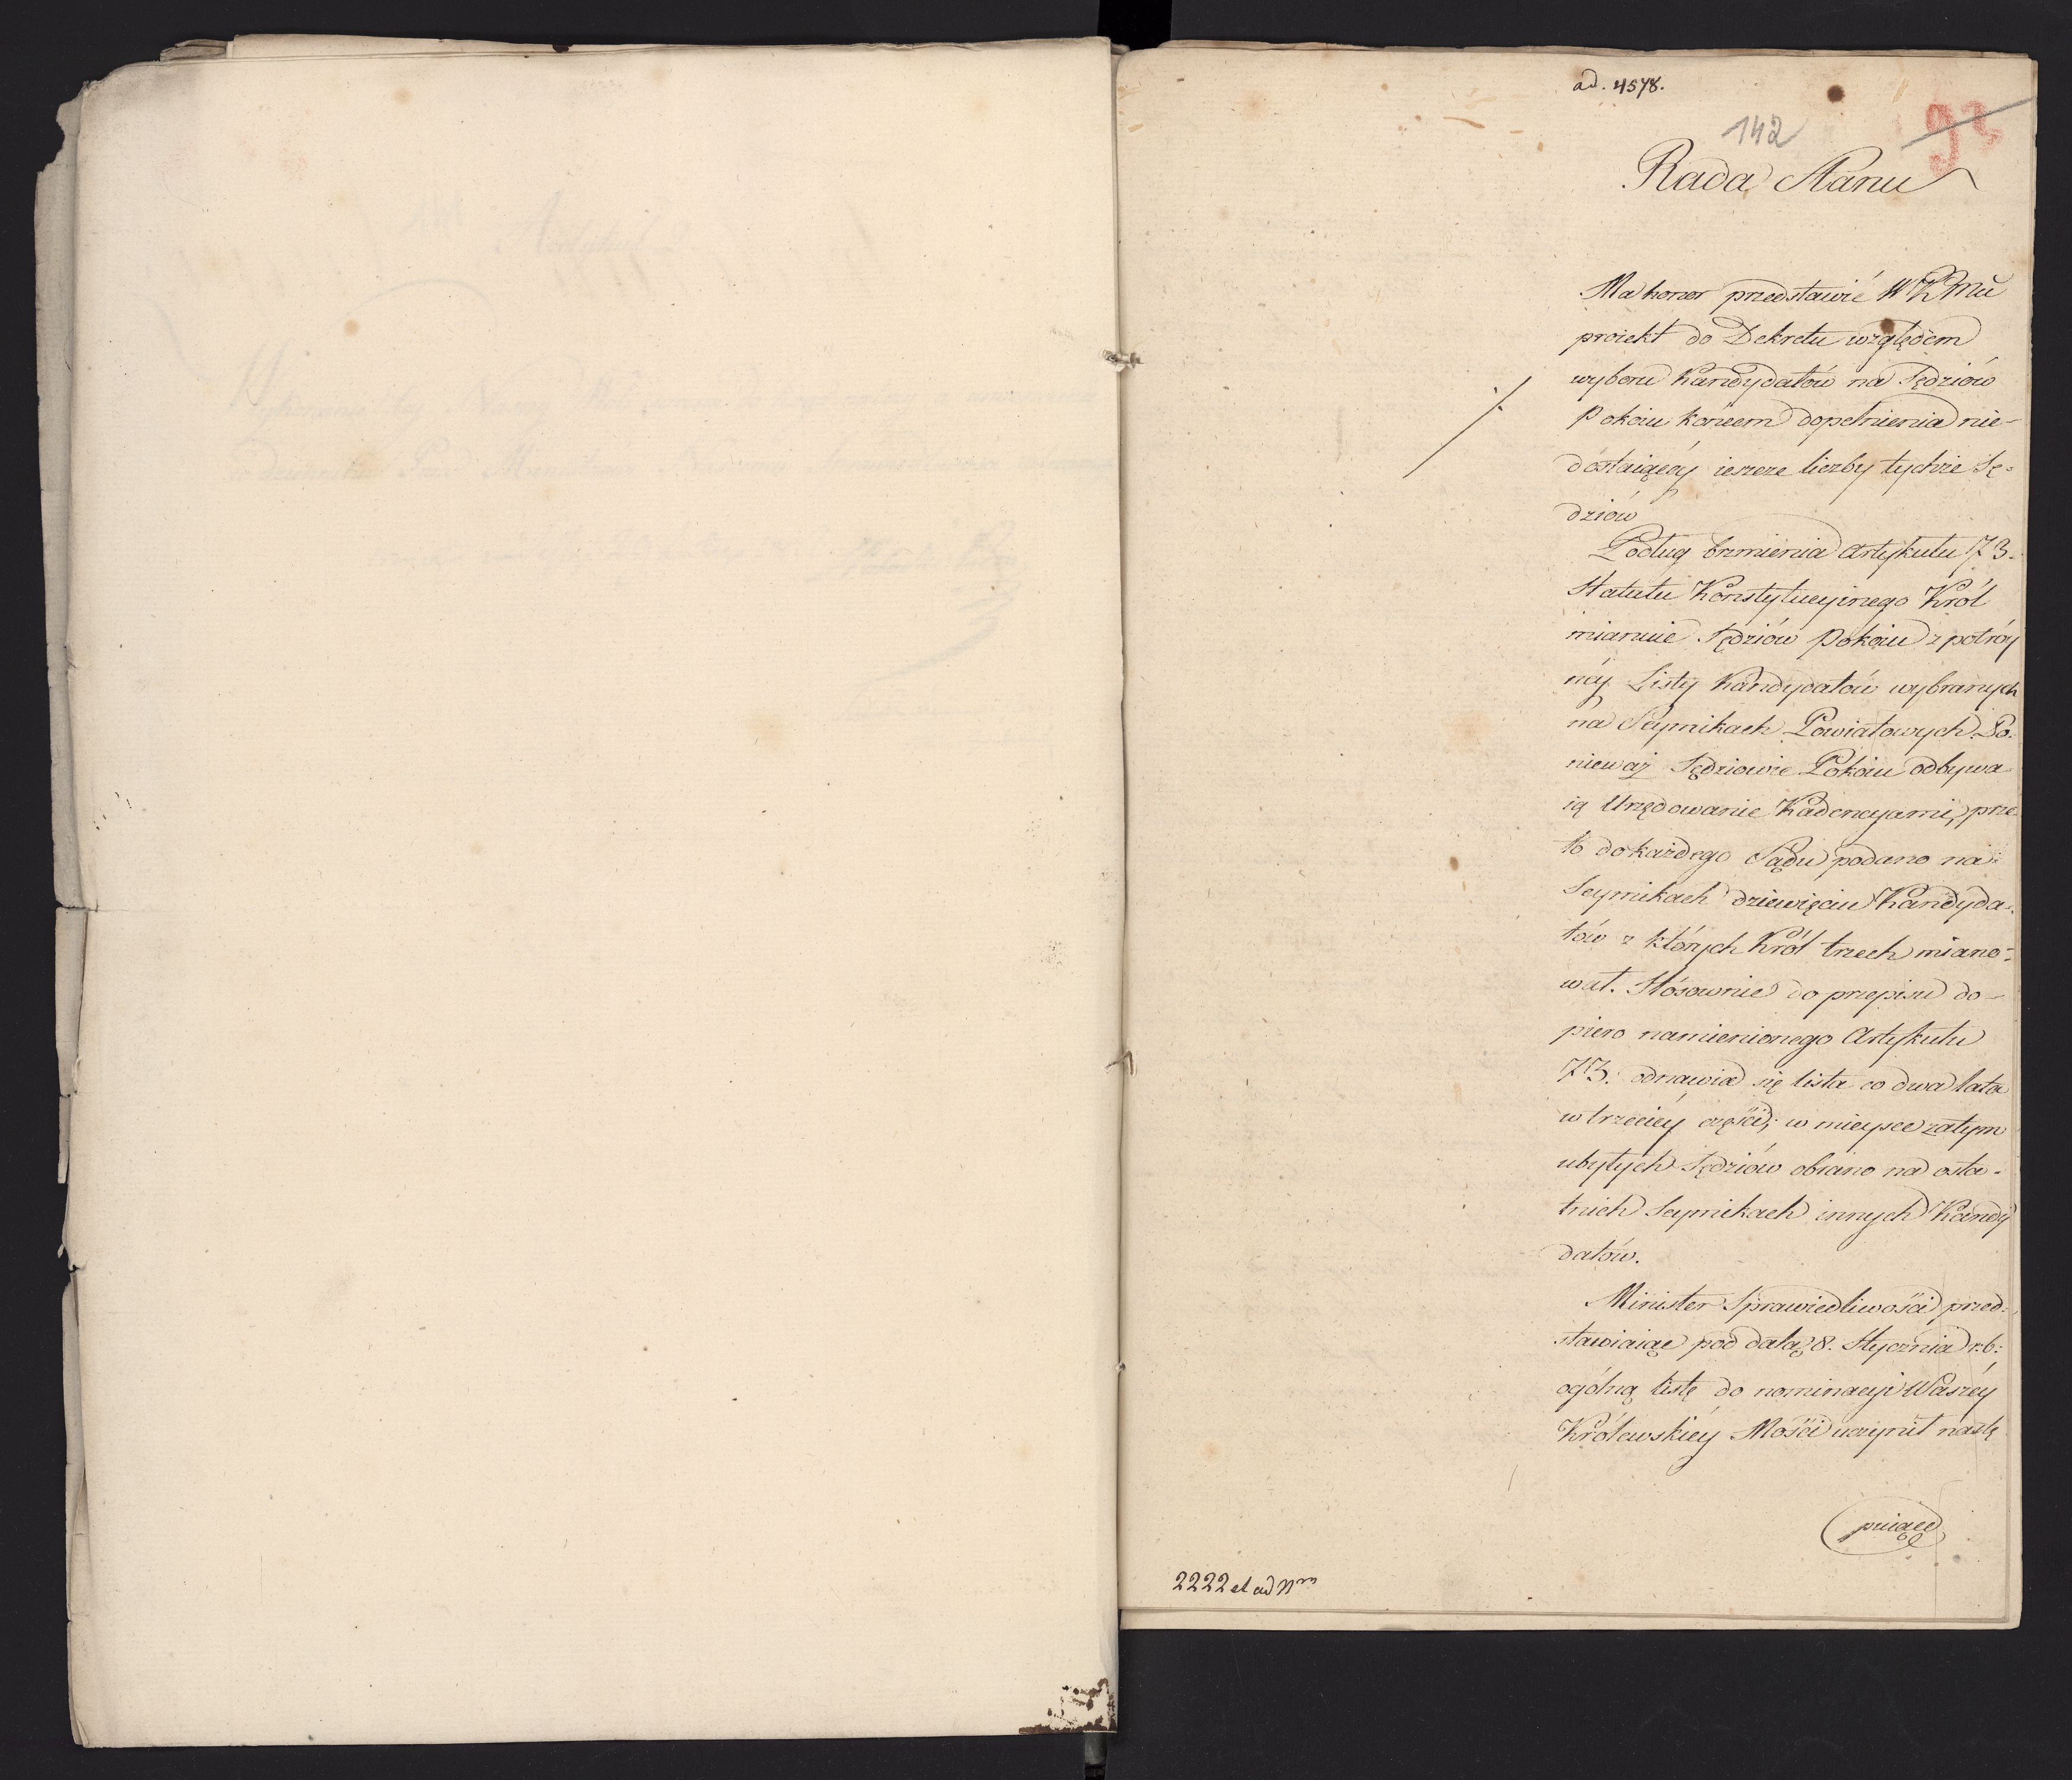 ad. 4578.
142
Rada Stanu
Ma honor przedstawić WKMci
proiekt do Dekretu względem
wyboru Kandydatów na Sędziów
Pokoiu końcem dopełnienia nie-
dostaiącéy ieszcze liczby tychże Sę-
dziów
Podług brzmienia Artykułu 73.
Statutu Konstytucyinego Król
mianuie Sędziów Pokoiu z potróy
néy Listy Kandydatów wybranych
na Seymikach Powiatowych. Po-
nieważ Sędziowie Pokoiu odbywa
ią Urzędowanie Kadencyami, prze-
to do każdego Sądu podano na
Seymikach dziewięciu Kandyda-
tów z których Król trzech miano-
wał. Stósownie do przepisu do-
piero namienionego Artykułu
73. odnawia się lista co dwa lata
w trzeciéy części; w mieysce zatym
ubyłych Sędziów obrano na osta-
tnich Seymikach innych Kandy
datów.
Minister Sprawiedliwości przed-
stawiaiąc pod datą 8. Stycznia r: b:
ogólną listę do nominacyi Waszéy
Królewskiéy Mości uczynił nastę
puiące
2222 et ad Nrm